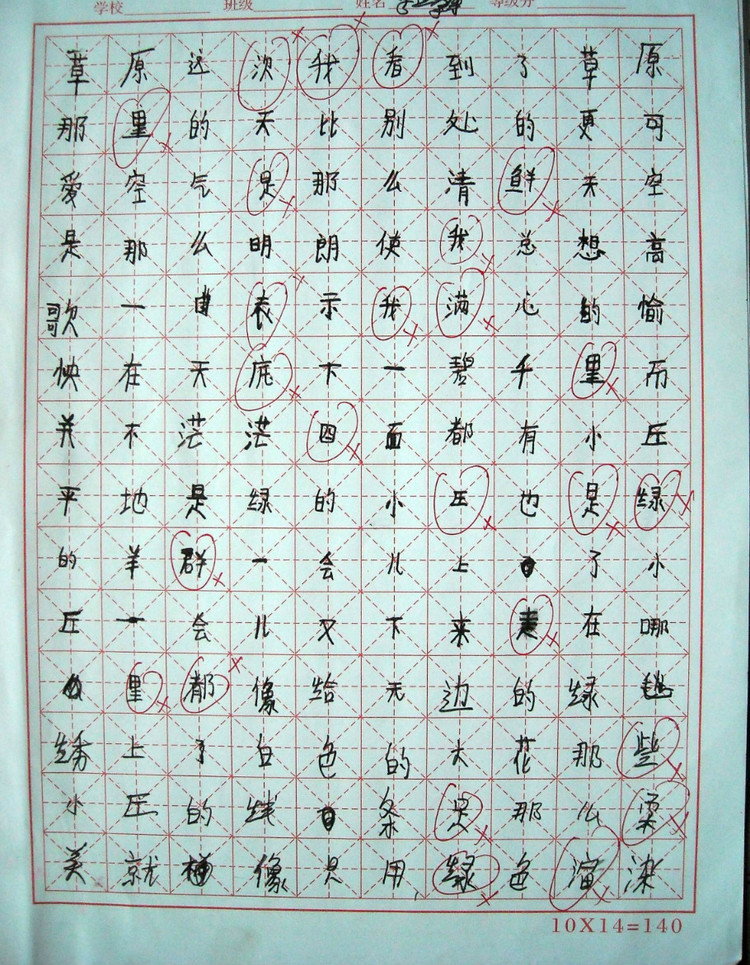 学校 班级 姓名 等级分
草原这次我看到了草原
那里的天比别处的更可
爱空气是那么清鲜天空
是那么明朗使我总想高
歌一曲表示我满心的愉
快在天底下一碧千里而
并不茫茫四面都有小丘
平地是绿的小丘也是绿
的羊群一会儿上了小
丘一会儿又下来走在哪
里都像给无边的绿毯
绣上了白色的大花那些
小丘的线条是那么柔
美就像只用绿色渲染
10X14=140